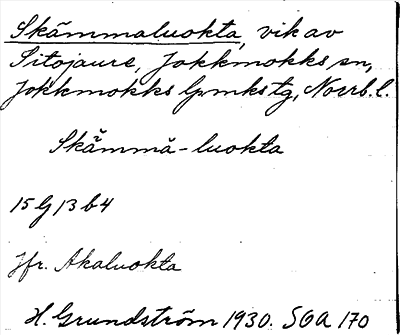 Skämmaluokta, vik av
Sitojaure, Jokkmokks sn,
Jokkmokks lpmkstg, Norrb. l.
Skä̆mmā-luokta
15 G 13 b 4
Jfr. Akaluokta
H. Grundström 1930. SOA 170